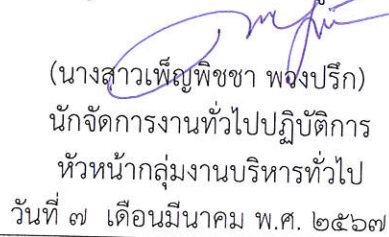 (นางสาวเพ็ญพิชชา พวงปรึก)
นักจัดการงานทั่วไปปฏิบัติการ
หัวหน้ากลุ่มงานบริหารทั่วไป
วันที่ ๗ เดือนมีนาคม พ.ศ. ๒๕๖๗